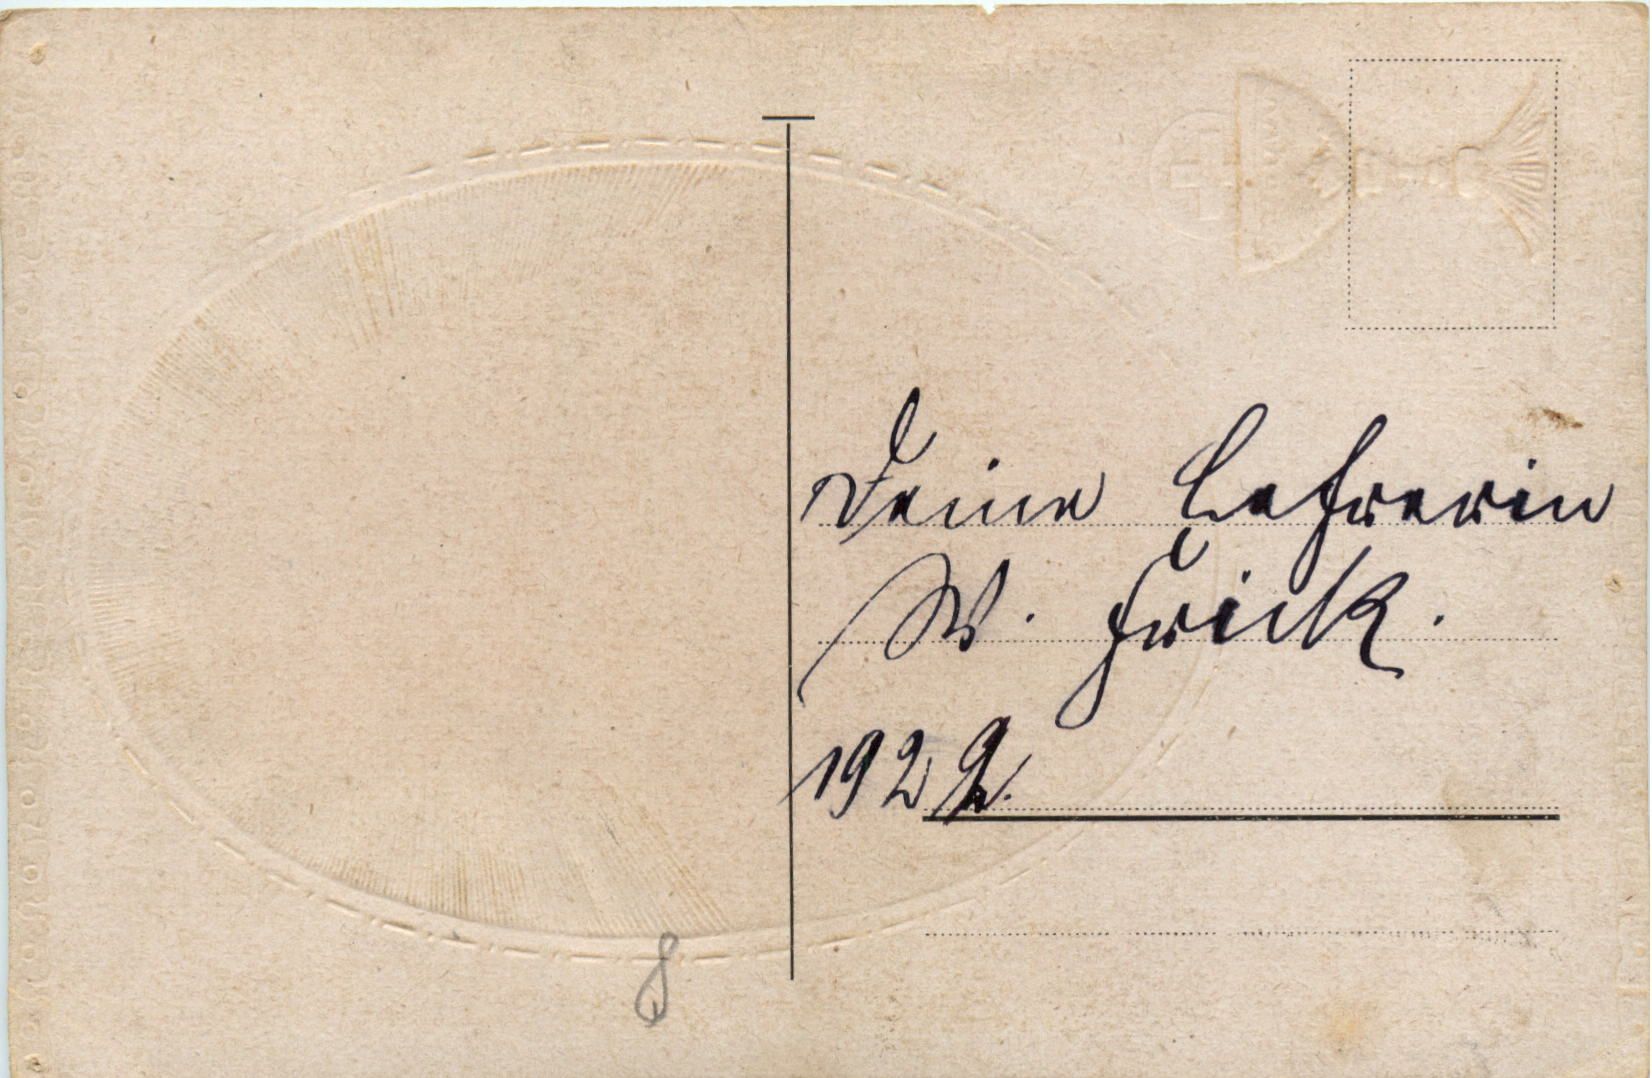 Deine Lehrerin
W. Frick.
1922.
8